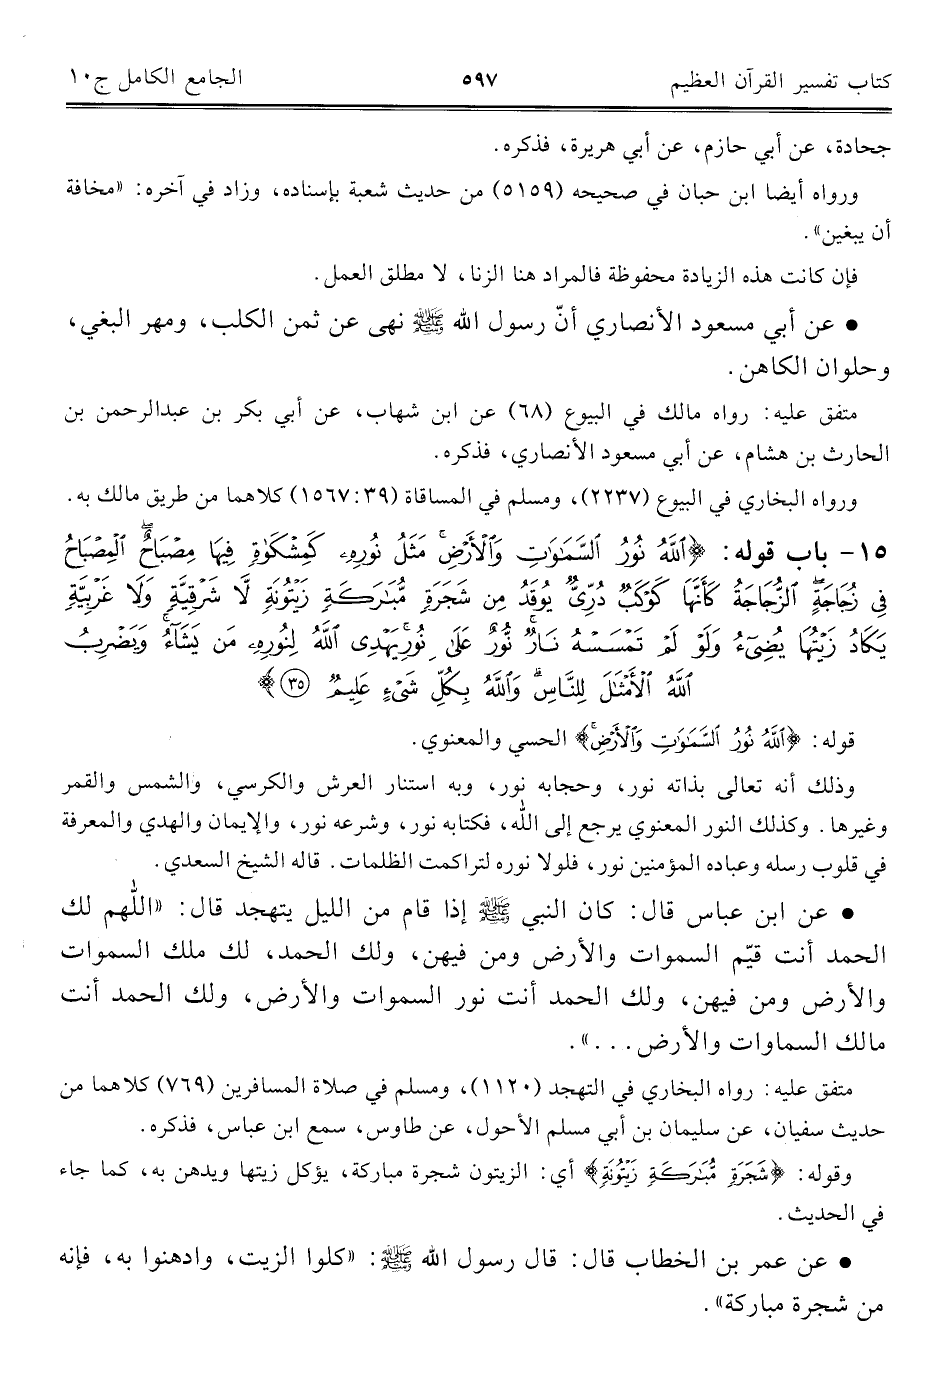 كتاب تفسير القرآن العظيم ٥٩٧ الجامع الكامل ج١٠
جحادة، عن أبي حازم، عن أبي هريرة، فذكره.
ورواه أيضا ابن حبان في صحيحه (٥١٥٩) من حديث شعبة بإسناده، وزاد في آخره: «مخافة
أن يبغين».
فإن كانت هذه الزيادة محفوظة فالمراد هنا الزنا، لا مطلق العمل.
• عن أبي مسعود الأنصاري أنّ رسول الله ﷺ نهى عن ثمن الكلب، ومهر البغي،
وحلوان الكاهن.
متفق عليه: رواه مالك في البيوع (٦٨) عن ابن شهاب، عن أبي بكر بن عبدالرحمن بن
الحارث بن هشام، عن أبي مسعود الأنصاري، فذكره.
ورواه البخاري في البيوع (٢٢٣٧)، ومسلم في المساقاة (١٥٦٧:٣٩) كلاهما من طريق مالك به.
١٥- باب قوله: ﴿ٱللَّهُ نُورُ ٱلسَّمَٰوَٰتِ وَٱلۡأَرۡضِۚ مَثَلُ نُورِهِۦ كَمِشۡكَوٰةٖ فِيهَا مِصۡبَاحٌۖ ٱلۡمِصۡبَاحُ
فِي زُجَاجَةٍۖ ٱلزُّجَاجَةُ كَأَنَّهَا كَوۡكَبٞ دُرِّيّٞ يُوقَدُ مِن شَجَرَةٖ مُّبَٰرَكَةٖ زَيۡتُونَةٖ لَّا شَرۡقِيَّةٖ وَلَا غَرۡبِيَّةٖ
يَكَادُ زَيۡتُهَا يُضِيٓءُ وَلَوۡ لَمۡ تَمۡسَسۡهُ نَارٞۚ نُّورٌ عَلَىٰ نُورٖۚ يَهۡدِي ٱللَّهُ لِنُورِهِۦ مَن يَشَآءُۚ وَيَضۡرِبُ
ٱللَّهُ ٱلۡأَمۡثَٰلَ لِلنَّاسِۗ وَٱللَّهُ بِكُلِّ شَيۡءٍ عَلِيمٞ ٣٥﴾
قوله: ﴿ٱللَّهُ نُورُ ٱلسَّمَٰوَٰتِ وَٱلۡأَرۡضِۚ﴾ الحسي والمعنوي.
وذلك أنه تعالى بذاته نور، وحجابه نور، وبه استنار العرش والكرسي، والشمس والقمر
وغيرها. وكذلك النور المعنوي يرجع إلى الله، فكتابه نور، وشرعه نور، والإيمان والهدي والمعرفة
في قلوب رسله وعباده المؤمنين نور، فلولا نوره لتراكمت الظلمات. قاله الشيخ السعدي.
• عن ابن عباس قال: كان النبي ﷺ إذا قام من الليل يتهجد قال: «اللهم لك
الحمد أنت قيّم السموات والأرض ومن فيهن، ولك الحمد، لك ملك السموات
والأرض ومن فيهن، ولك الحمد أنت نور السموات والأرض، ولك الحمد أنت
مالك السماوات والأرض...».
متفق عليه: رواه البخاري في التهجد (١١٢٠)، ومسلم في صلاة المسافرين (٧٦٩) كلاهما من
حديث سفيان، عن سليمان بن أبي مسلم الأحول، عن طاوس، سمع ابن عباس، فذكره.
وقوله: ﴿شَجَرَةٖ مُّبَٰرَكَةٖ زَيۡتُونَةٖ﴾ أي: الزيتون شجرة مباركة، يؤكل زيتها ويدهن به، كما جاء
في الحديث.
• عن عمر بن الخطاب قال: قال رسول الله ﷺ: «كلوا الزيت، وادهنوا به، فإنه
من شجرة مباركة».